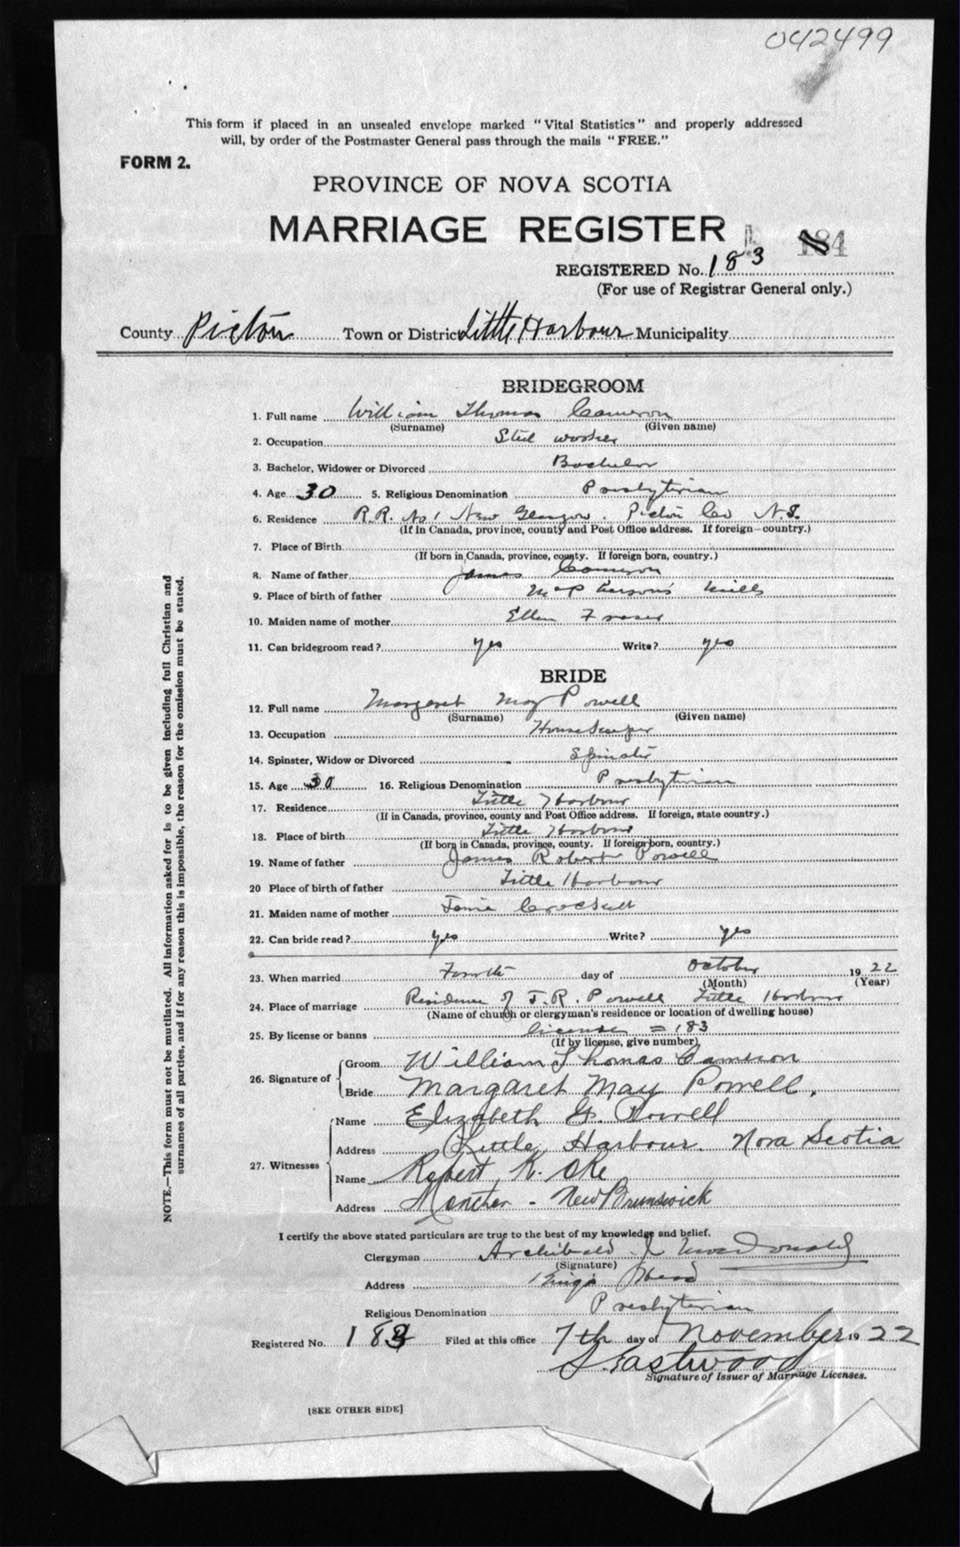 042499
This form if placed in an unsealed envelope marked "Vital Statistics" and properly addressed
will, by order of the Postmaster General pass through the mails "FREE."
FORM 2.
PROVINCE OF NOVA SCOTIA
MARRIAGE REGISTER
184
REGISTERED No. 183
(For use of Registrar General only.)
County Pictou Town or District Little Harbour Municipality
BRIDEGROOM
1. Full name William Thomas Cameron
(Surname) (Given name)
2. Occupation Steel worker
3. Bachelor, Widower or Divorced Bachelor
4. Age 30 5. Religious Denomination Presbyterian
6. Residence R.R. No 1 New Glasgow. Pictou Co N.S.
(If in Canada, province, county and Post Office address. If foreign—country.)
7. Place of Birth
(If born in Canada, province, county. If foreign born, country.)
8. Name of father James Cameron
9. Place of birth of father McPhersons Mills
10. Maiden name of mother Ellen Fraser
11. Can bridegroom read? yes Write? yes
BRIDE
12. Full name Margaret May Powell
(Surname) (Given name)
13. Occupation Housekeeper
14. Spinster, Widow or Divorced Spinster
15. Age 30 16. Religious Denomination Presbyterian
17. Residence Little Harbour
(If in Canada, province, county and Post Office address. If foreign, state country.)
18. Place of birth Little Harbour
(If born in Canada, province, county. If foreign born, country.)
19. Name of father James Robert Powell
20 Place of birth of father Little Harbour
21. Maiden name of mother Crockett
22. Can bride read? yes Write? yes
23. When married Fourth day of October 1922
(Month) (Year)
24. Place of marriage Residence of J.R. Powell Little Harbour
(Name of church or clergyman's residence or location of dwelling house)
25. By license or banns license = 183
(If by license, give number)
26. Signature of
Groom William Thomas Cameron
Bride Margaret May Powell.
27. Witnesses
Name Elizabeth G. Powell
Address Little Harbour. Nova Scotia
Name Robert K.
Address - New Brunswick
I certify the above stated particulars are true to the best of my knowledge and belief.
Clergyman Archibald J MacDonald
(Signature)
Address Kings Head
Religious Denomination Presbyterian
Registered No. 183 Filed at this office 7th day of November 1922
S. Eastwood
Signature of Issuer of Marriage Licenses.
[SEE OTHER SIDE]
NOTE.—This form must not be mutilated. All information asked for is to be given including full Christian and
surnames of all parties, and if for any reason this is impossible, the reason for the omission must be stated.